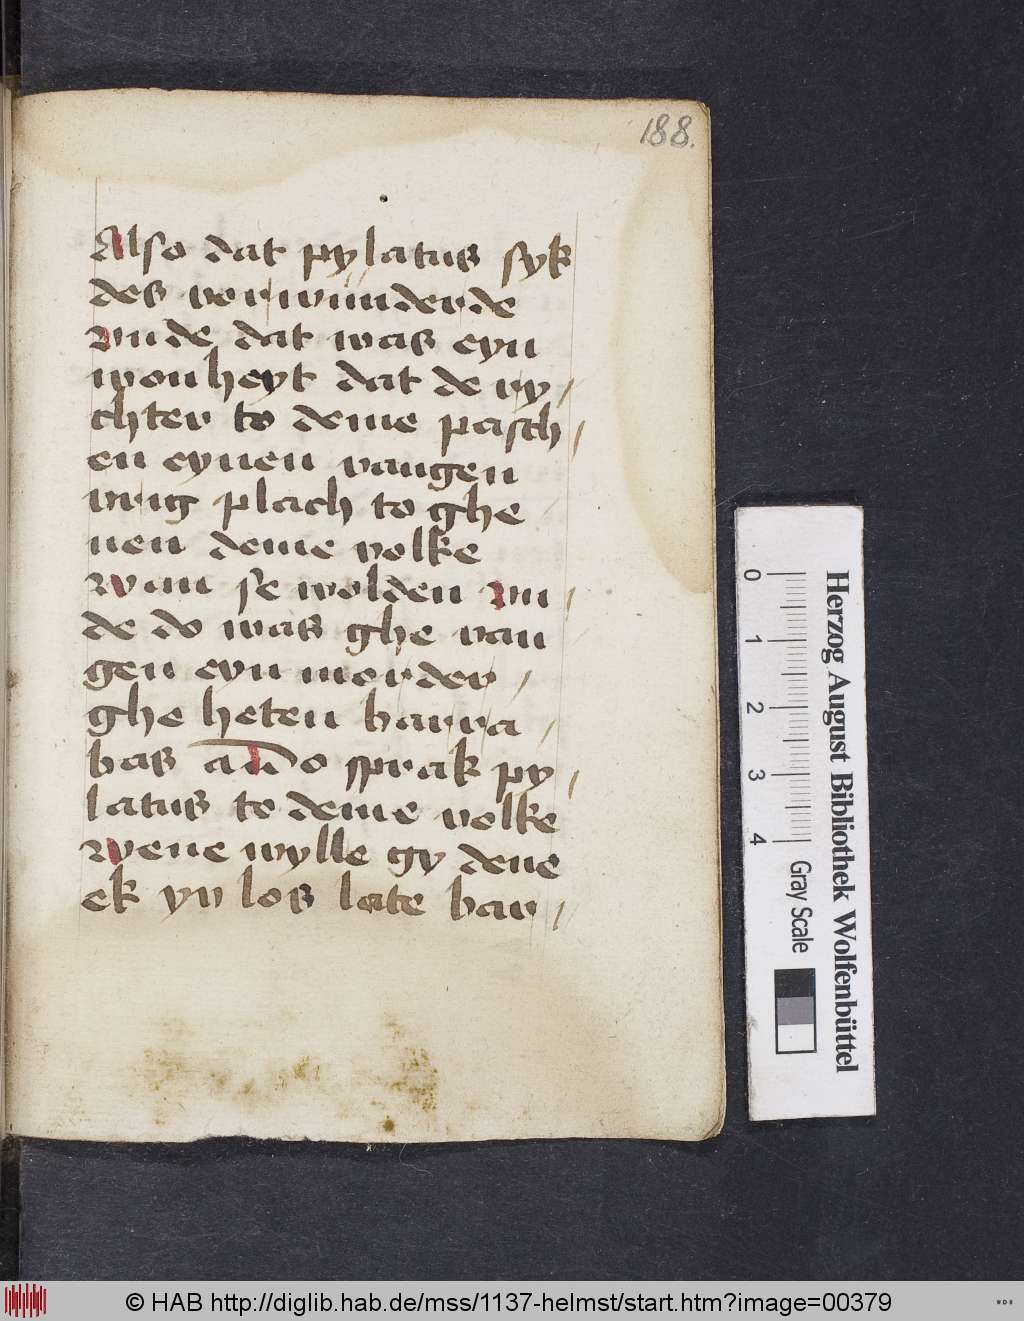 188.
Also dat pylatus syk
des vor wunderde
vnde dat was eyn
won heyt dat de ry /
chter to deme pasch /
en eynen vangen
plach to ghe
uen deme volke
wan se wolden vn /
de do was ghe van
gen eyn morder /
ghe heten barra /
bas do sprak py /
latus to deme volke
Wene wylle gy dene
ek yv los late bar /
Herzog August Bibliothek Wolfenbüttel
0 1 2 3 4
Gray Scale
© HAB http://diglib.hab.de/mss/1137-helmst/start.htm?image=00379